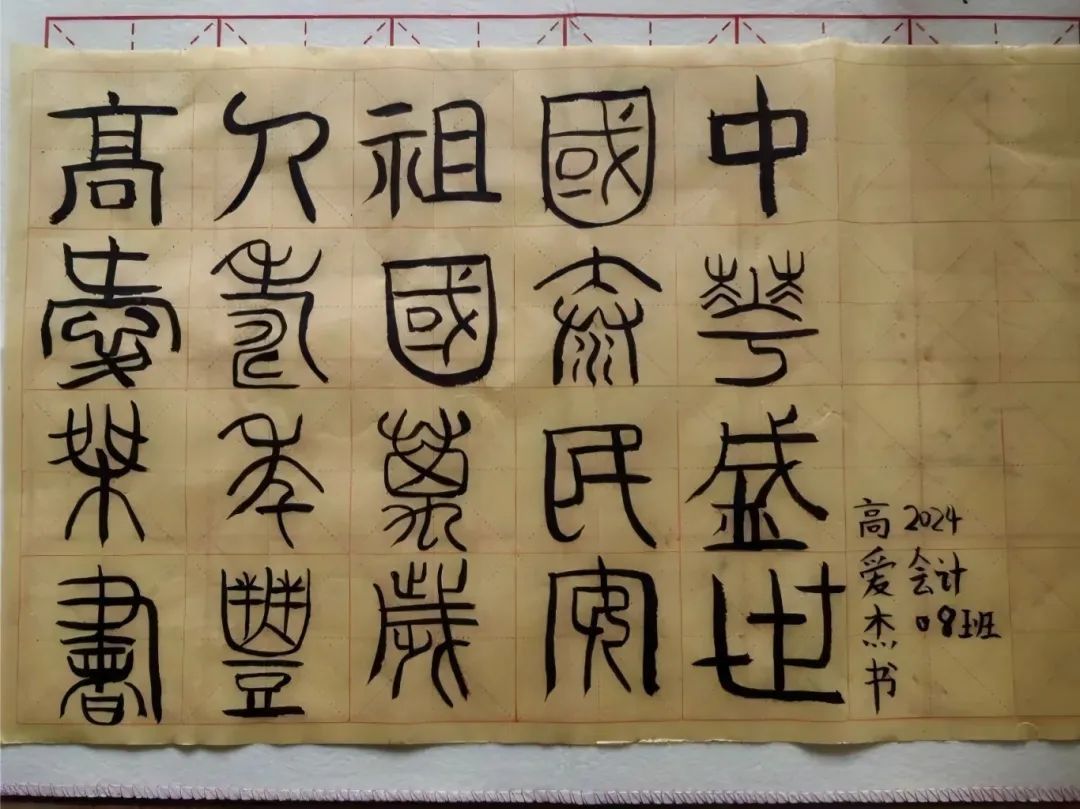 中華盛世
國泰民安
祖國萬歲
人壽年豐
高愛桀書
2024会计08班
高爱杰书